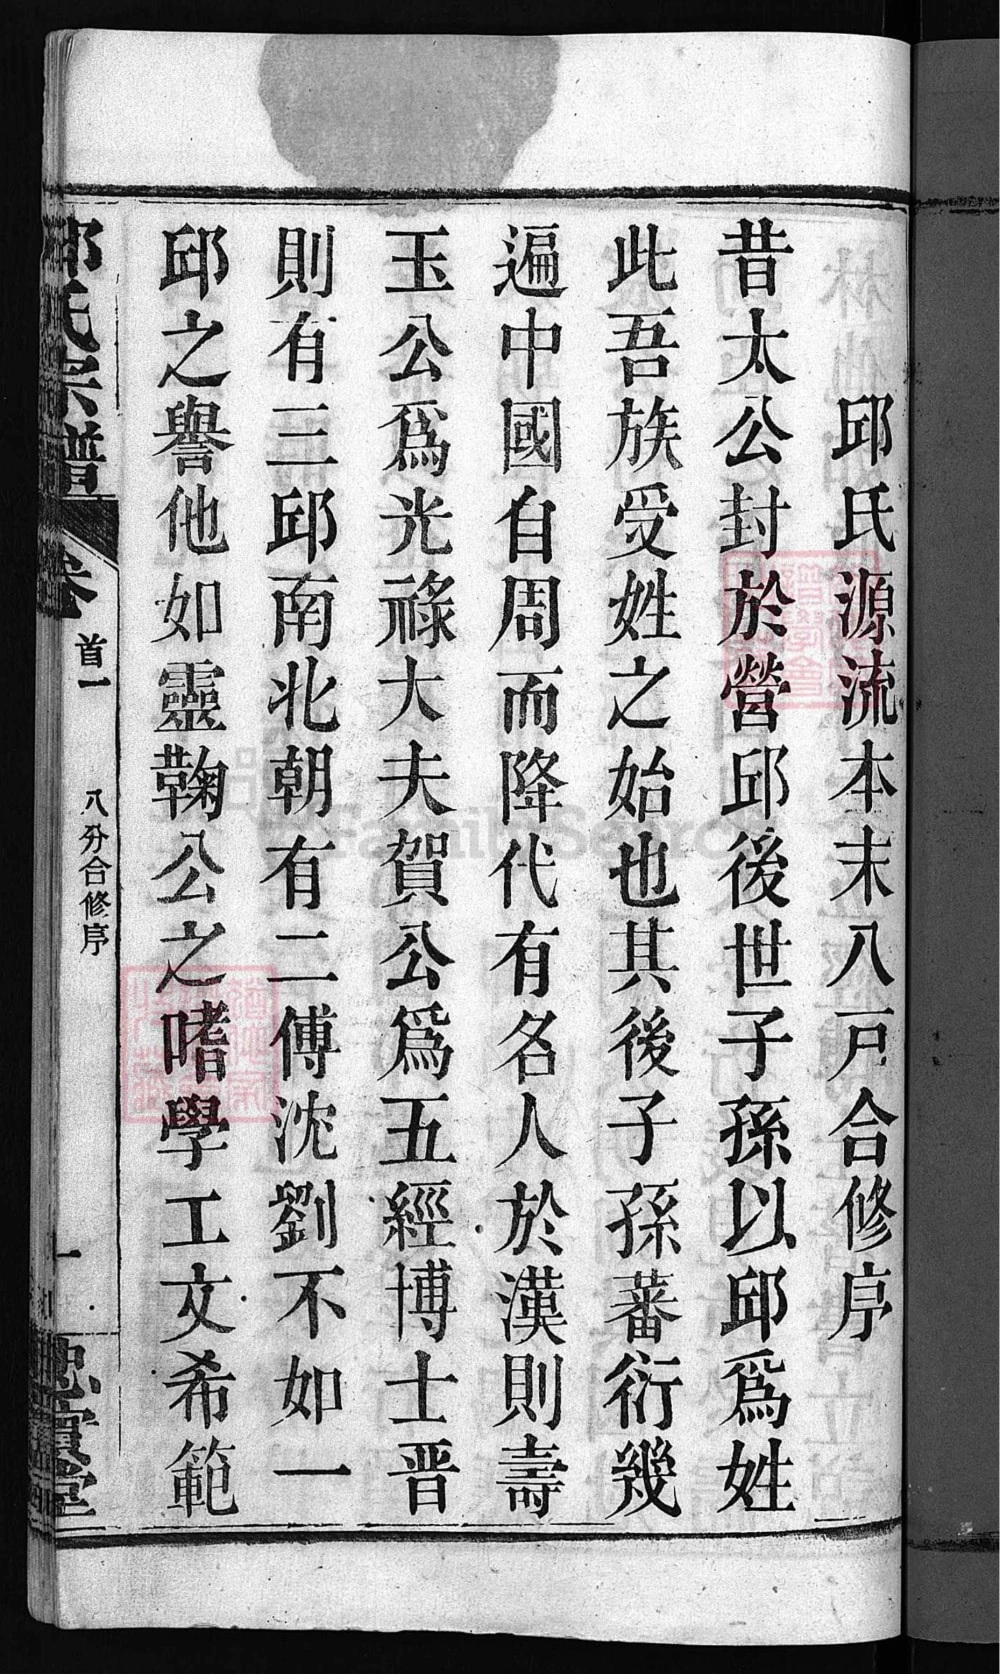 邱氏源流本末八戸合修序
昔太公封於營邱後世子孫以邱爲姓
此吾族受姓之始也其後子孫蕃衍幾
遍中國自周而降代有名人於漢則壽
玉公爲光祿大夫賀公爲五經博士晋
則有三邱南北朝有二傅沈劉不如一
邱之譽他如靈鞠公之嗜學工文希範
邱氏宗譜
卷
首一
八分合修序
一
忠實堂
FamilySearch